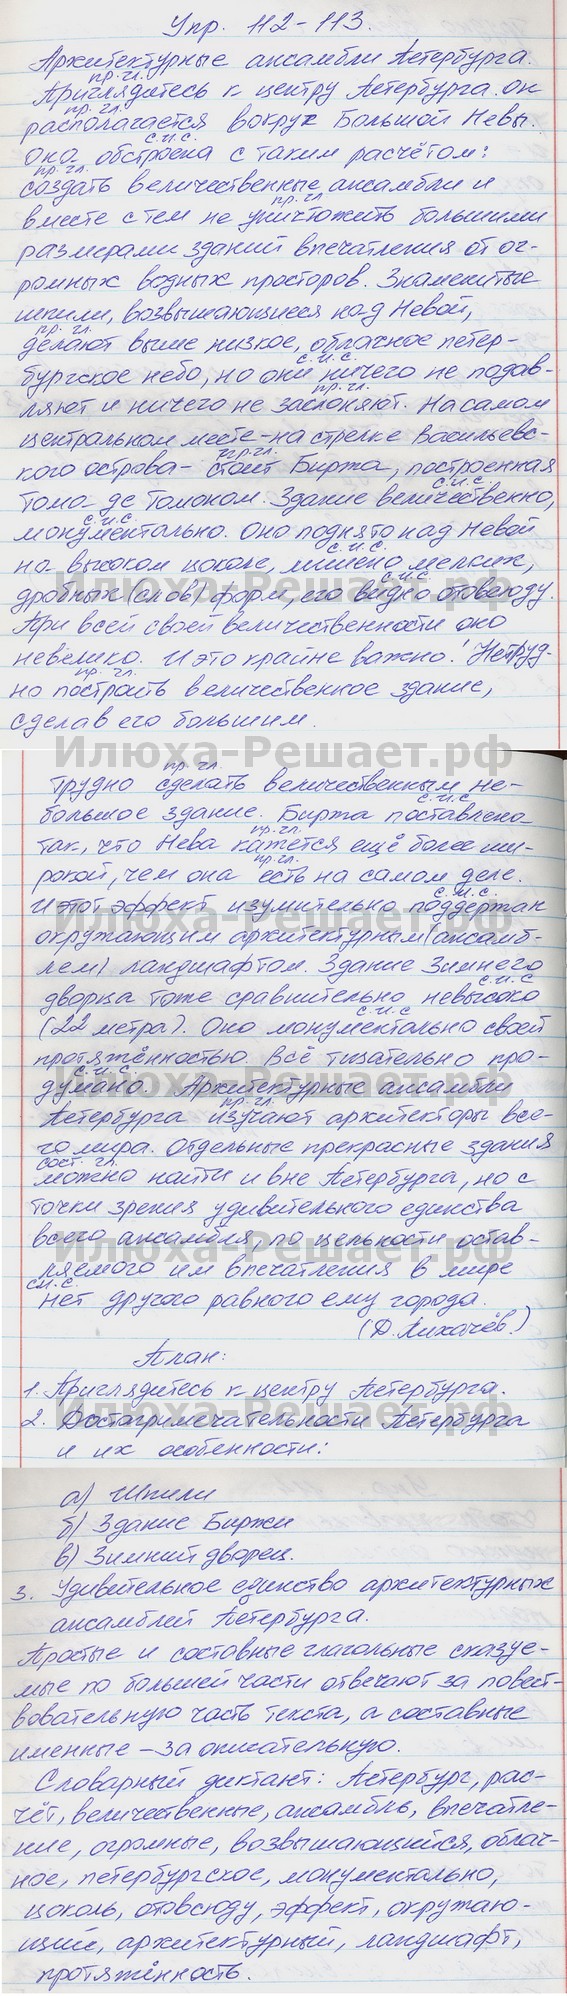 Упр. 112-113.
Архитектурные ансамбли Петербурга.
пр. гл.
Приглядитесь к центру Петербурга. он
пр. гл.
располагается вокруг Большой Невы.
с.и.с.
Она обстроена с таким расчётом:
пр. гл.
создать величественные ансамбли и
пр. гл.
вместе с тем не уничтожить большими
размерами зданий впечатления от ог-
ромных водных просторов. Знаменитые
шпили, возвышающиеся над Невой,
пр. гл.
делают выше низкое, облачное петер-
с.и.с.
бургское небо, но они ничего не подав-
пр. гл.
ляют и ничего не заслоняют. На самом
центральном месте - на стрелке Васильевс-
пр. гл.
кого острова - стоит Биржа, построенная
с.и.с.
Тома де Томоном. Здание величественно,
с.и.с.
монументально. Оно поднято над Невой
с.и.с.
на высоком цоколе, лишено мелких,
с.и.с.
дробных (слов) форм, его видно отовсюду.
При всей своей величественности оно
невелико. И это крайне важно! Нетруд-
пр. гл.
но построить величественное здание,
сделав его большим.
пр. гл.
трудно сделать величественным не-
с.и.с.
большое здание. Биржа поставлена
пр. гл.
так, что Нева кажется ещё более ши-
пр. гл.
рокой, чем она есть на самом деле.
с.и.с.
И этот эффект изумительно поддержан
окружающим архитектурным (ансамб-
лем) ландшафтом. Здание Зимнего
с.и.с
дворца тоже сравнительно невысоко
с.и.с
(22 метра). Оно монументально своей
протяжённостью. Всё тщательно про-
с.и.с.
думано. Архитектурные ансамбли
пр. гл.
Петербурга изучают архитекторы все-
го мира. Отдельные прекрасные здания
сост. гл.
можно найти и вне Петербурга, но с
точки зрения удивительного единства
всего ансамбля, по цельности остав-
ляемого им впечатления в мире
с.и.с.
нет другого равного ему города.
(Д. Лихачёв.)
План:
1. Приглядитесь к центру Петербурга.
2. Достопримечательности Петербурга
и их особенности:
а) Шпили
б) Здание Биржи
в) Зимний дворец.
3. Удивительное единство архитектурных
ансамблей Петербурга.
Простые и составные глагольные сказуе-
мые по большей части отвечают за повест-
вовательную часть текста, а составные
именные - за описательную.
Словарный диктант: Петербург, рас-
чёт, величественные, ансамбль, впечатле-
ние, огромные, возвышающийся, облач-
ное, петербургское, монументально,
цоколь, отовсюду, эффект, окружаю-
щий, архитектурный, ландшафт,
протяжённость.
Илюха-Решает.рф
Илюха-Решает.рф
Илюха-Решает.рф
Илюха-Решает.рф
Илюха-Решает.рф
Илюха-Решает.рф